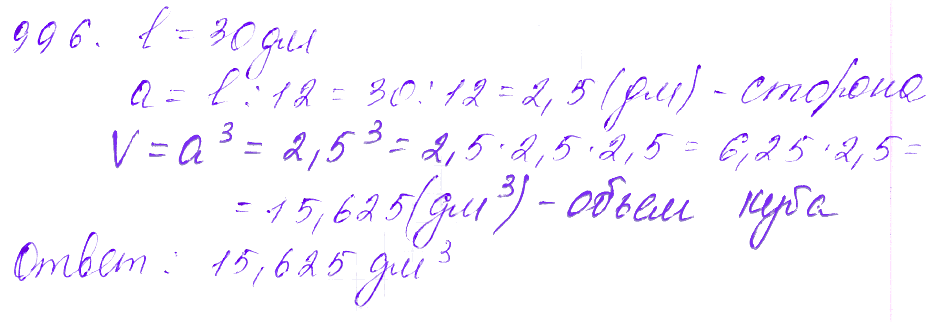 996. l = 30 дм
a = l : 12 = 30 : 12 = 2,5 (дм) - сторона
V = a³ = 2,5³ = 2,5 · 2,5 · 2,5 = 6,25 · 2,5 =
= 15,625 (дм³) - объем куба
Ответ: 15,625 дм³